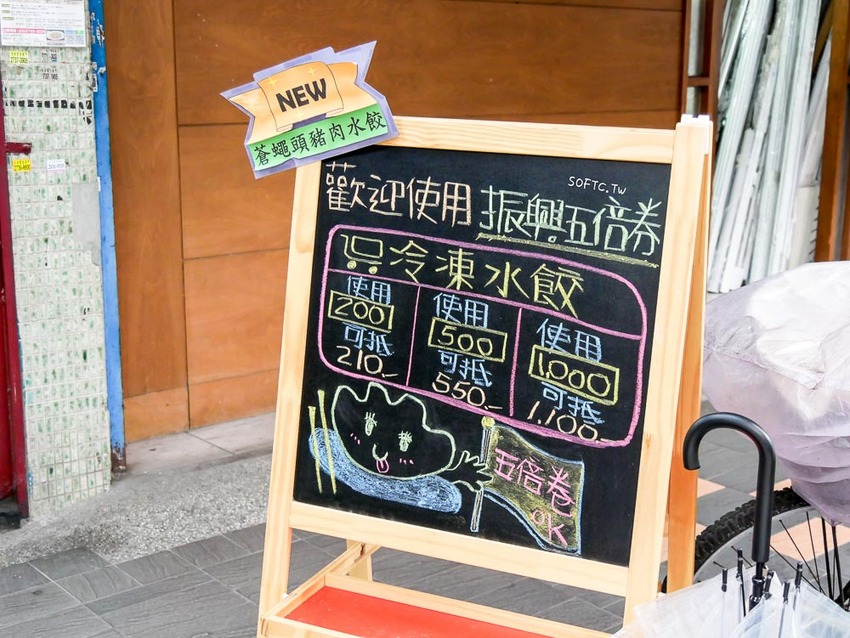 NEW
蒼蠅頭豬肉水餃
SOFTC.TW
歡迎使用 振興五倍券
冷凍水餃
使用
200
可抵
210.-
使用
500
可抵
550.-
使用
1,000
可抵
1,100.-
五倍卷
OK